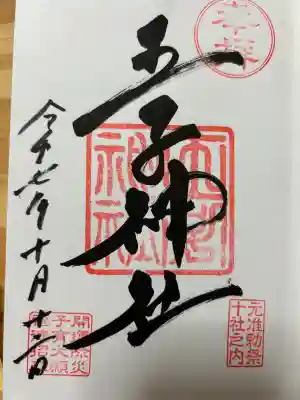 奉拝
元准勅祭
十社之内
王子神社
王子
神社
令和七年十月十二日
開運除災
子育大願